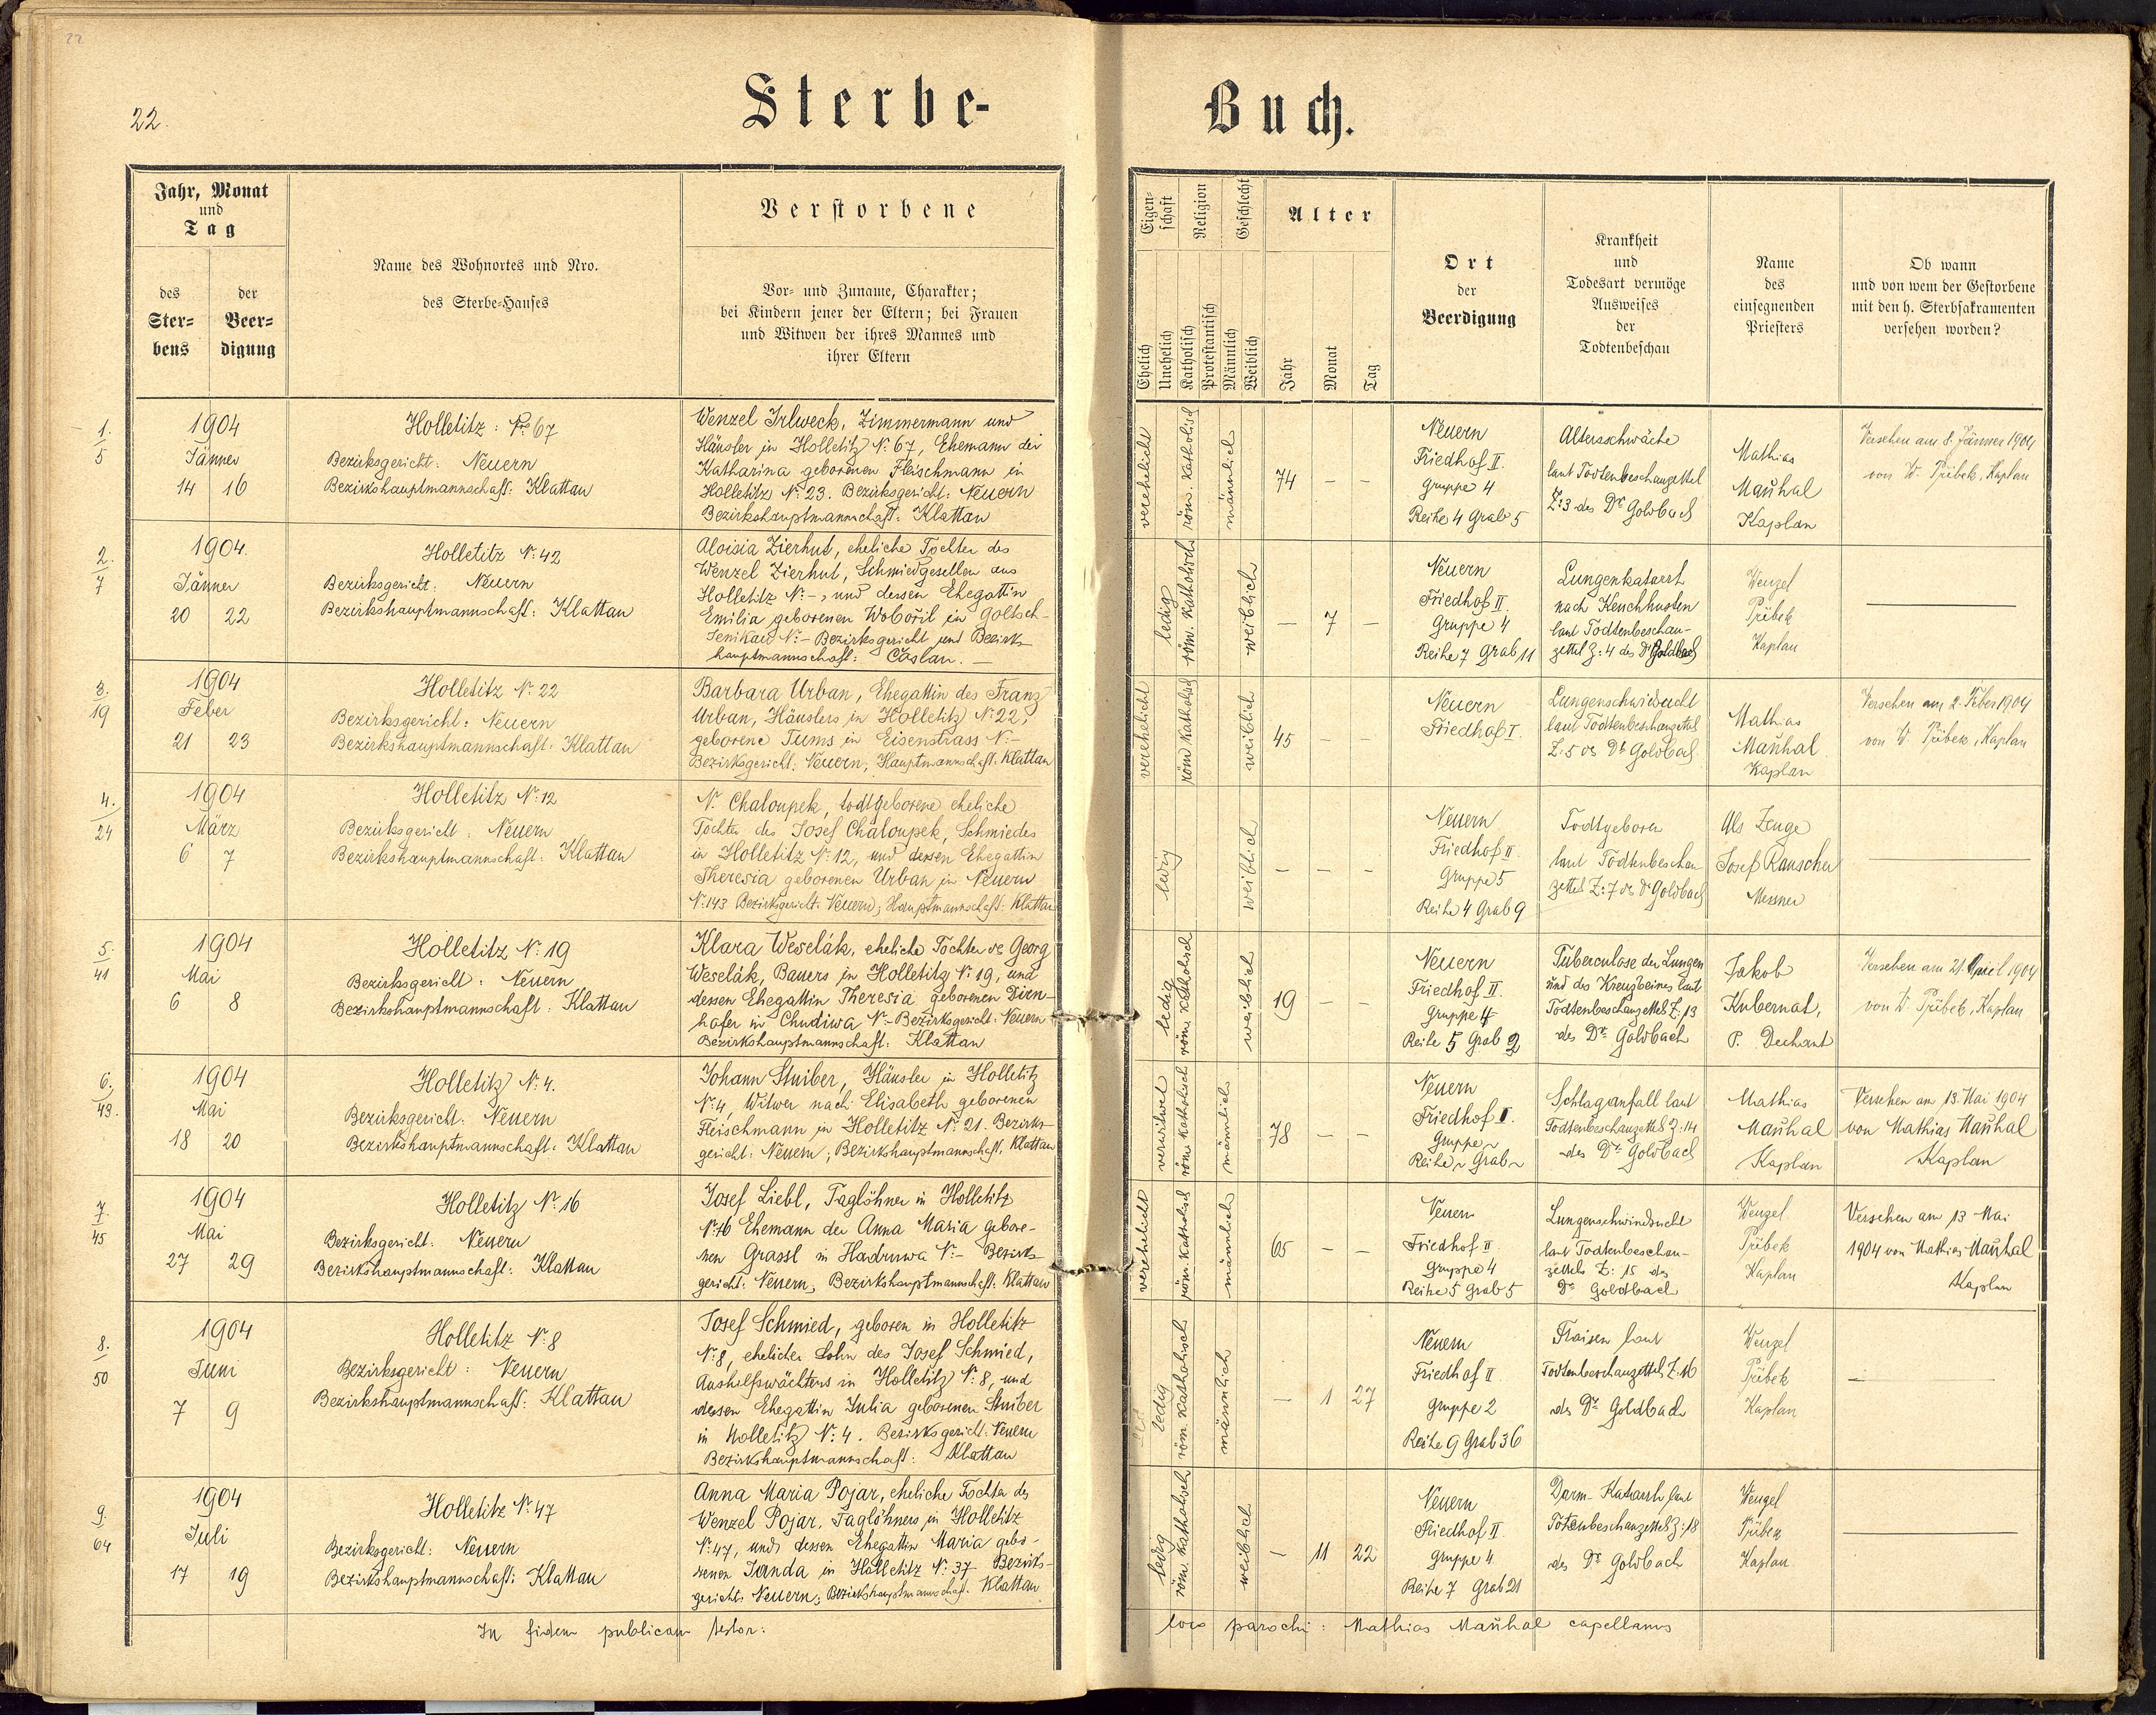 22
22.
Sterbe-
Buch.
Jahr, Monat
und
Tag
des
Ster-
bens
der
Beer-
digung
Name des Wohnortes und Nro.
des Sterbe-Hauses
Verstorbene
Vor- und Zuname, Charakter;
bei Kindern jener der Eltern; bei Frauen
und Witwen der ihres Mannes und
ihrer Eltern
Eigen-
schaft
Religion
Geschlecht
Alter
Ehelich
Unehelich
Katholisch
Protestantisch
Männlich
Weiblich
Jahr
Monat
Tag
Ort
der
Beerdigung
Krankheit
und
Todesart vermöge
Ausweises
der
Todtenbeschau
Name
des
einsegnenden
Priesters
Ob wann
und von wem der Gestorbene
mit den h. Sterbsakramenten
versehen worden?
1.
5
1904
Jänner
14 16
Holletitz: Nro 67
Bezirksgericht: Neuern
Bezirkshauptmannschaft: Klattau
Wenzel Irlweck, Zimmermann und
Häusler in Holletitz N: 67, Ehemann der
Katharina geborenen Fleischmann in
Holletitz N: 23. Bezirksgericht: Neuern
Bezirkshauptmannschaft: Klattau
verehelicht
röm. katholisch
männlich
74 – –
Neuern
Friedhof II.
Gruppe 4
Reihe 4 Grab 5
Altersschwäche
laut Todtenbeschauzettel
Z: 3 des Dr Goldbach
Mathias
Mauhal
Kaplan
Versehen am 8. Jänner 1904
von W. Přibek, Kaplan
2.
7
1904.
Jänner
20 22
Holletitz N: 42
Bezirksgericht: Neuern
Bezirkshauptmannschaft: Klattau
Aloisia Zierhut, eheliche Tochter des
Wenzel Zierhut, Schmiedgesellen aus
Holletitz N: –, und dessen Ehegattin
Emilia geborenen Wobořil in Goltsch-
Jenikau N: – Bezirksgericht und Bezirks-
hauptmannschaft: Časlau. –
ledig
röm. katholisch
weiblich
– 7 –
Neuern
Friedhof II.
Gruppe 4
Reihe 7 Grab 11
Lungenkatarrh
nach Keuchhusten
laut Todtenbeschau-
zettel Z: 4 des Dr Goldbach
Wenzel
Přibek
Kaplan
3.
19
1904
Feber
21 23
Holletitz N: 22
Bezirksgericht: Neuern
Bezirkshauptmannschaft: Klattau
Barbara Urban, Ehegattin des Franz
Urban, Häuslers in Holletitz N: 22,
geborene Tums in Eisenstrass N: –
Bezirksgericht: Neuern, Hauptmannschaft: Klattau
verehelicht
röm katholisch
weiblich
45 – –
Neuern
Friedhof I.
Lungenschwindsucht
laut Todtenbeschauzettel
Z: 5 des Dr Goldbach
Mathias
Mauhal
Kaplan
Versehen am 2. Feber 1904
von W. Přibek, Kaplan
4.
24
1904
März
6 7
Holletitz N: 12
Bezirksgericht: Neuern
Bezirkshauptmannschaft: Klattau
N. Chaloupek, todtgeborene eheliche
Tochter des Josef Chaloupek, Schmiedes
in Holletitz N: 12, und dessen Ehegattin
Theresia geborenen Urban in Neuern
N: 143 Bezirksgericht: Neuern; Hauptmannschaft: Klattau
ledig
weiblich
– – –
Neuern
Friedhof II
Gruppe 5
Reihe 4 Grab 9
Todtgeboren
laut Todtenbeschau
zettel Z: 7 des Dr Goldbach
Als Zeuge
Josef Rauscher
Messner
5.
41
1904
Mai
6 8
Holletitz N: 19
Bezirksgericht: Neuern
Bezirkshauptmannschaft: Klattau
Klara Weselák, eheliche Tochter des Georg
Weselák, Bauers in Holletitz N: 19, und
dessen Ehegattin Theresia geborenen Dirn-
hofer in Chudiwa N: – Bezirksgericht: Neuern
Bezirkshauptmannschaft: Klattau
ledig
röm. katholisch
weiblich
19 – –
Neuern
Friedhof II.
Gruppe 4
Reihe 5 Grab 2
Tuberculose der Lungen
und des Kreuzbeines laut
Todtenbeschauzettel Z: 13
des Dr. Goldbach
Jakob
Kubernat,
P. Dechant
Versehen am 21. April 1904
von W. Přibek, Kaplan
6.
43.
1904
Mai
18 20
Holletitz N: 4.
Bezirksgericht: Neuern
Bezirkshauptmannschaft: Klattau
Johann Stuiber, Häusler in Holletitz
N: 4, Witwer nach Elisabeth geborenen
Fleischmann in Holletitz N: 21. Bezirks-
gericht: Neuern; Bezirkshauptmannschaft: Klattau
verwitwet
röm. katholisch
männlich
78 – –
Neuern
Friedhof I.
Gruppe ~
Reihe ~ Grab ~
Schlaganfall laut
Todtenbeschauzettel Z: 14
des Dr. Goldbach
Mathias
Mauhal
Kaplan
Versehen am 13. Mai 1904
von Mathias Mauhal
Kaplan
7.
45
1904
Mai
27 29
Holletitz N: 16
Bezirksgericht: Neuern
Bezirkshauptmannschaft: Klattau
Josef Liebl, Taglöhner in Holletitz
N: 16 Ehemann der Anna Maria gebore-
nen Grassl in Hadruwa N: – Bezirks-
gericht: Neuern, Bezirkshauptmannschaft: Klattau
verehelicht
röm. katholisch
männlich
65 – –
Neuern
Friedhof II
Gruppe 4
Reihe 5 Grab 5
Lungenschwindsucht
laut Todtenbeschau-
zettels Z: 15 des
Dr Goldbach
Wenzel
Přibek
Kaplan
Versehen am 13 Mai
1904 von Mathias Mauhal
Kaplan
8.
50
1904
Juni
7 9
Holletitz N: 8
Bezirksgericht: Neuern
Bezirkshauptmannschaft: Klattau
Josef Schmied, geboren in Holletitz
N: 8, ehelicher Sohn des Josef Schmied,
Aushilfswächters in Holletitz N: 8, und
dessen Ehegattin Julia geborenen Stuiber
in Holletitz N: 4. Bezirksgericht: Neuern
Bezirkshauptmannschaft: Klattau
ledig
röm katholisch
männlich
– 1 27
Neuern
Friedhof II
Gruppe 2
Reihe 9 Grab 36
Fraisen laut
Todtenbeschauzettel Z: 16
des Dr Goldbach
Wenzel
Přibek
Kaplan
9.
64
1904
Juli
17 19
Holletitz N: 47
Bezirksgericht: Neuern
Bezirkshauptmannschaft: Klattau
Anna Maria Pojar, eheliche Tochter des
Wenzel Pojar, Taglöhners in Holletitz
N: 47, und dessen Ehegattin Maria gebo-
renen Janda in Holletitz N: 37 Bezirks-
gericht: Neuern; Bezirkshauptmannschaft: Klattau
ledig
röm. katholisch
weiblich
– 11 22
Neuern
Friedhof II.
Gruppe 4
Reihe 7 Grab 21
Darm-Katarrh laut
Totenbeschauzettel Z: 18
des Dr Goldbach
Wenzel
Přibek
Kaplan
In fidem publicam testor:
loco parochi: Mathias Mauhal capellanus